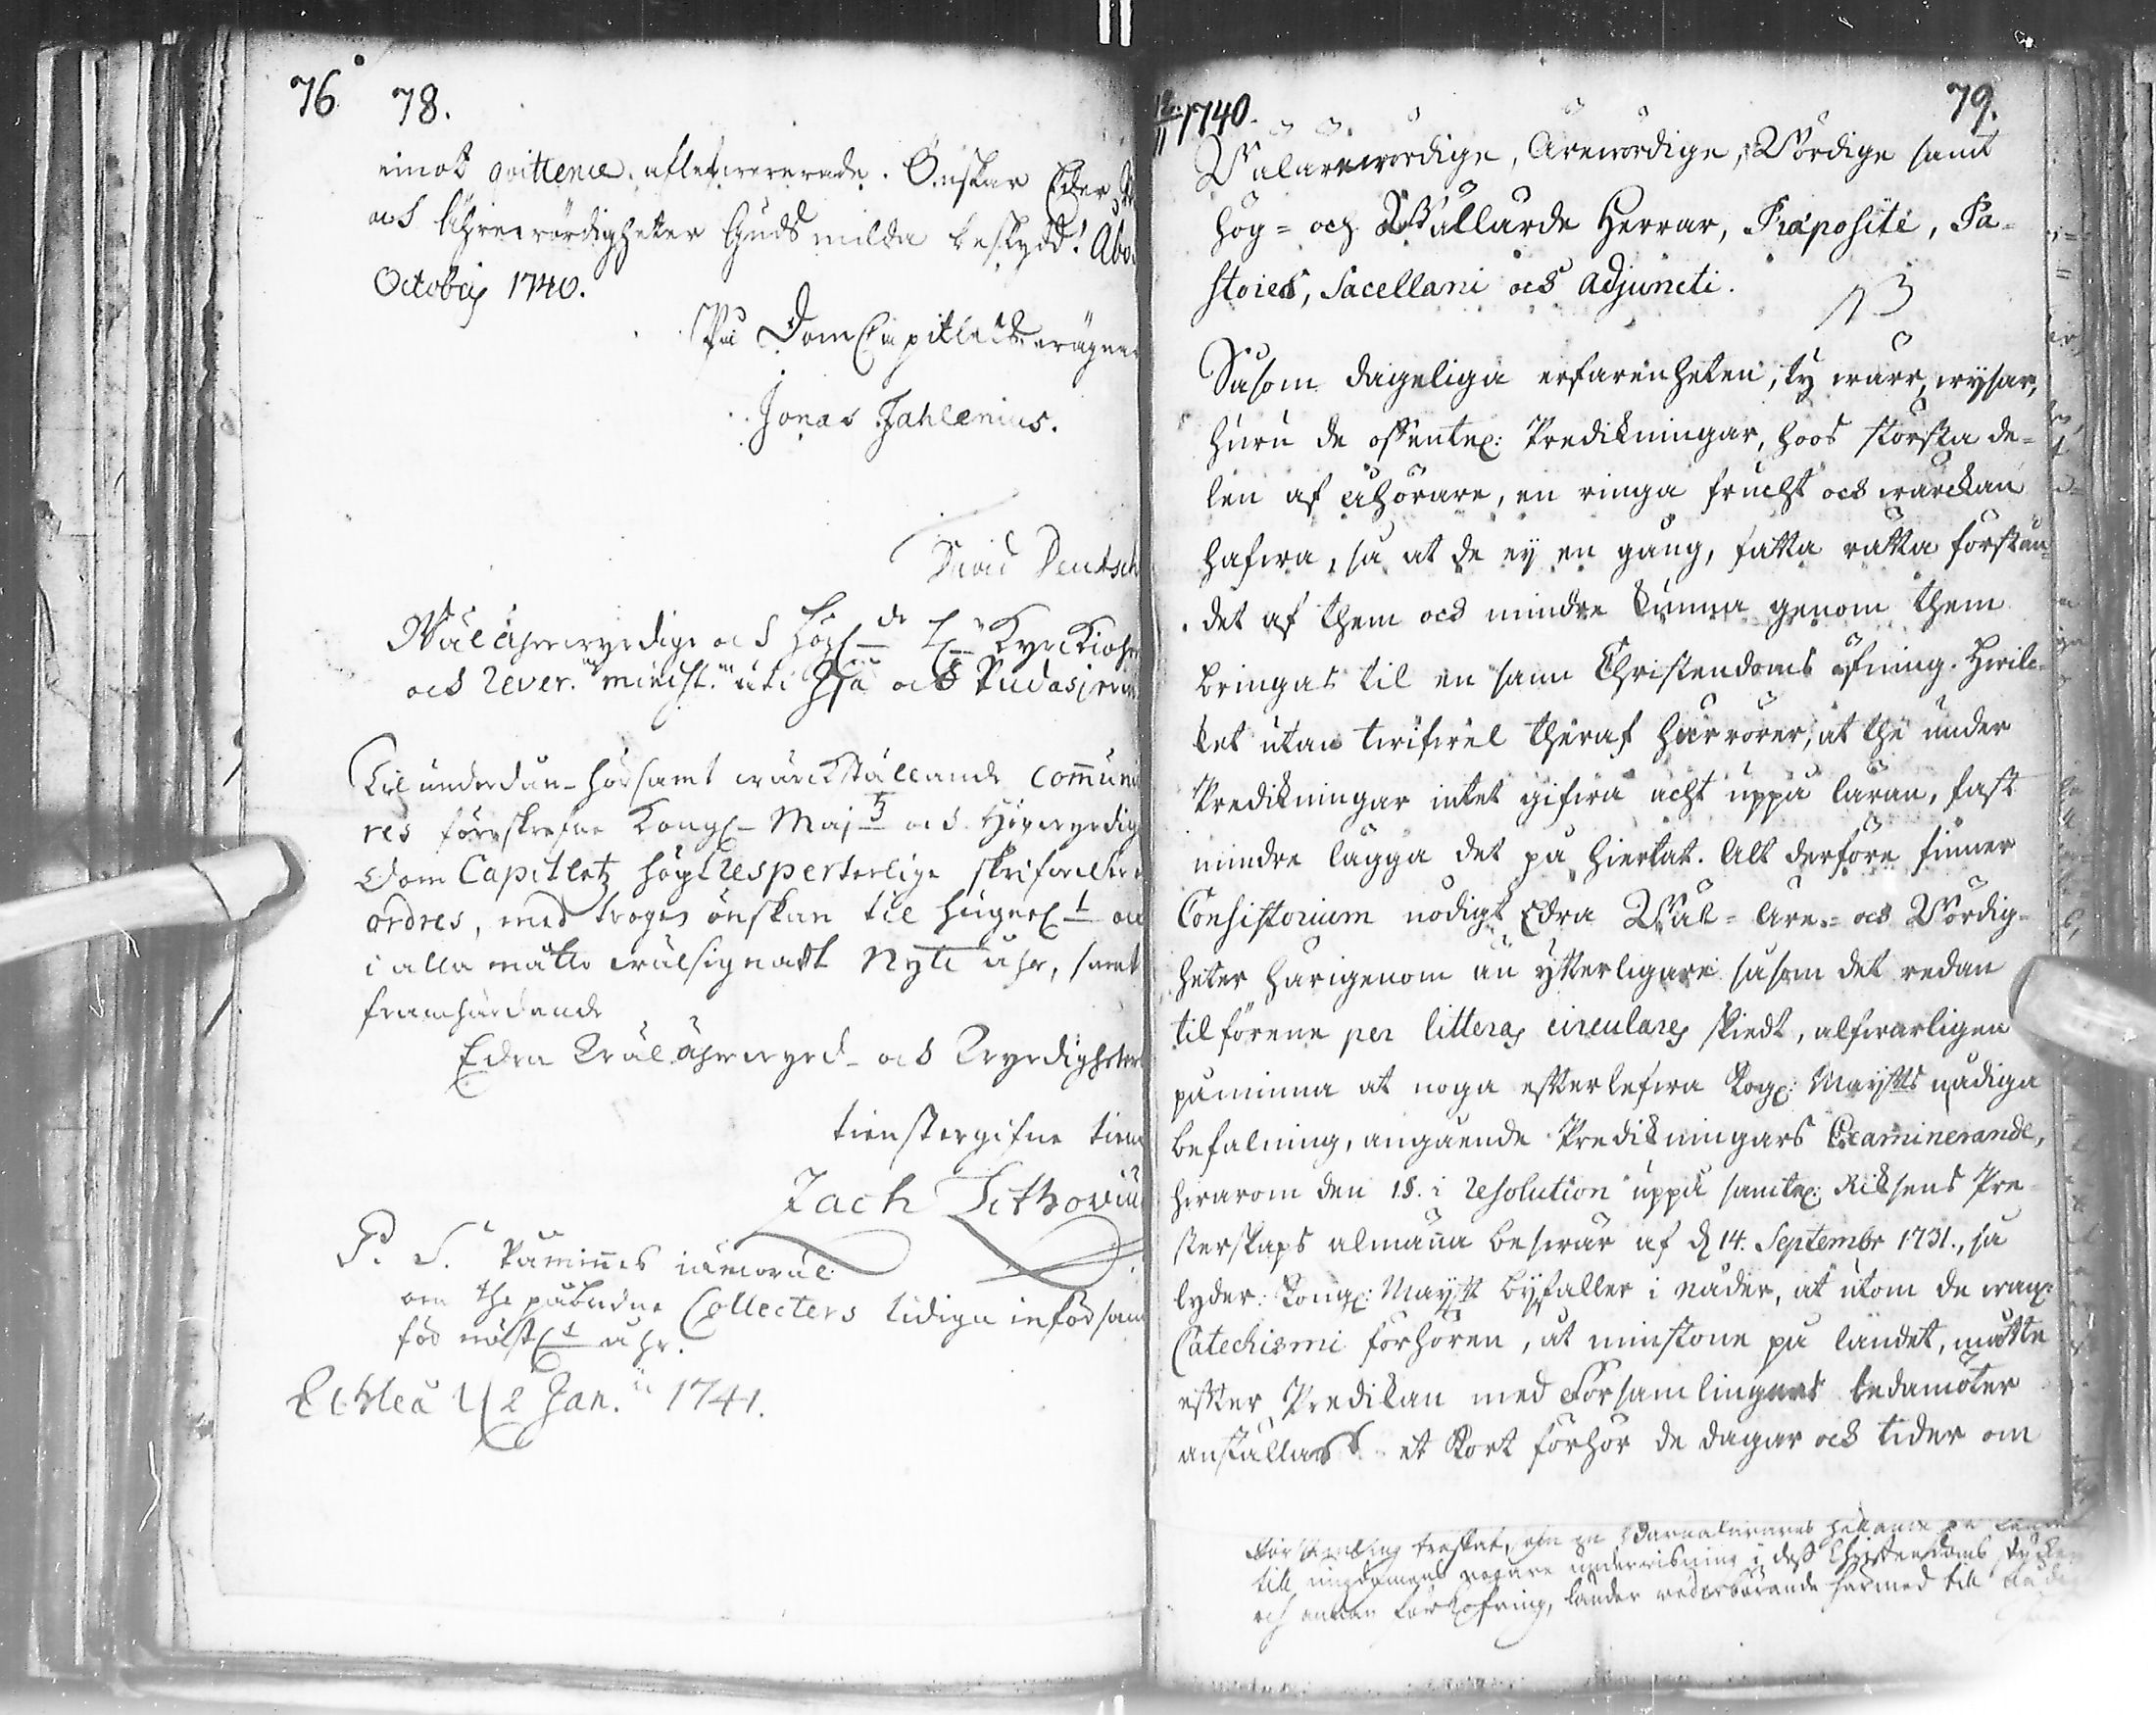 76 78.
emot qvittence aflefwererade. Önskar Eder
och Ährewördigheter Guds milda beskydd! Åbo
Octobris 1740.
På DomCapitlets wägnar
Jonas Fahlenius.
David Deutsch
Wäl Ährewyrdige och Högl. Kyrckioh
och Rever. minist. uti Ijå och Pudasjervi
Til underdån- hörsamt wärckställande communi
res föreskrefne Kongl. Maj:tz och Högwyrdig
Dom Capitletz högtrespecterlige skrifwelser
ordres, med trogen önskan til hugnel. och
i alla måtto wälsignadt Nytt åhr, samt
framhärdande
Edra WälÄhrewyrd- och Wyrdigheters
tienstergifne tien
Zach Lithoviu
P. S. Påminnes iämwäl
om the påbudne Collecters tidiga införsam
för näst åhr.
Lethleå d 2 Jan. 1741.
12/11 1740. 79.
Wälärewördige, Ärewördige, Wördige samt
Hög- och Wällärde Herrar, Præpositi, Pa-
stores, Sacellani och Adjuncti.
Såsom dageliga erfarenheten, ty wärr, wysar,
huru de offentel: Predikningar, hoos största de-
len af åhörare, en ringa frucht och wärckan
hafwa, så at de ey en gång, fatta rätta förstån-
det af them och mindre kunna genom them
bringas til en sann Christendoms öfning. Hwil-
ket utan twifwel theraf härrörer, at the under
Predikningar intet gifwa acht uppå läran, fast
mindre lägga det på hiertat. Alt derföre finner
Consistorium nödigt Edra Wäl- Äre- och Wördig-
heter härigenom än ytterligare såsom det redan
tilförene per litteras circulares skiedt, alfwarligen
påminna at noga efterlefwa Kongl: Maytts nådiga
befalning, angående Predikningars Examinerande,
hwarom den 18. i Resolution uppå samtel: Riksens Pre-
sterskaps almäna beswär af d 14. Septembr 1731., så
lyder: Kongl: Maytt byfaller i nåder, at utom de wanl:
Catechismi förhören, at minstone på landet, måtte
efter Predikan med Församlingens ledamöter
anställas et kort förhör de dagar och tider om
Församling
till ungdomens nogare underwisning i dess Christendoms stycken
och annan förkofring, länder wederbörande härmed till